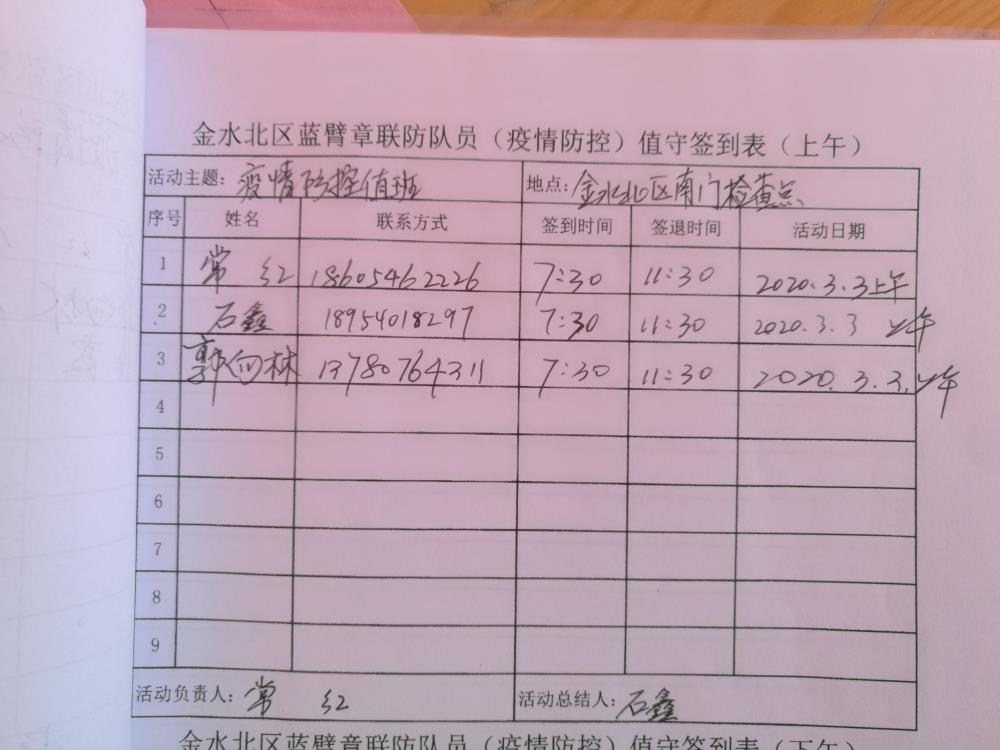 金水北区蓝臂章联防队员（疫情防控）值守签到表（上午）
活动主题：疫情防控值班 地点：金水北区南门检查点
序号 姓名 联系方式 签到时间 签退时间 活动日期
1 常红 18605462226 7:30 11:30 2020.3.3上午
2 石鑫 18954018297 7:30 11:30 2020.3.3 上午
3 郭向林 13780764311 7:30 11:30 2020.3.3.上午
4
5
6
7
8
9
活动负责人：常红 活动总结人：石鑫
金水北区蓝臂章联防队员（疫情防控）值守签到表（下午）